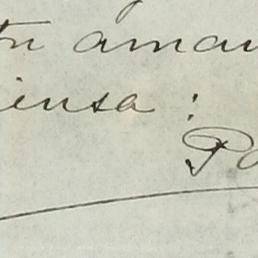 tu aman
iensa :
Po